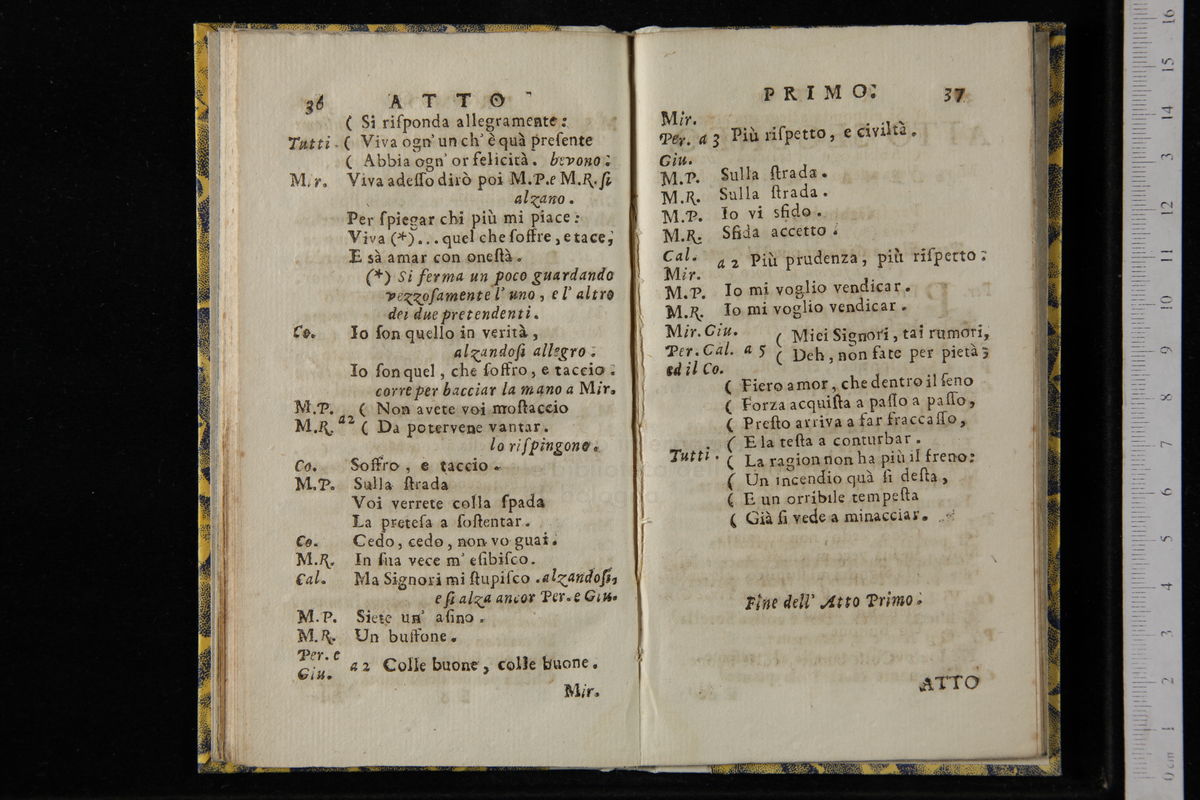 36 ATTO
( Si riſponda allegramente:
Tutti. ( Viva ogn' un ch' è quà preſente
( Abbia ogn' or felicità. bevono:
Mir. Viva adeſſo dirò poi M.P. e M.R. ſi
alzano.
Per ſpiegar chi più mi piace:
Viva (*)... quel che ſoffre, e tace;
E sà amar con oneſtà.
(*) Si ferma un poco guardando
vezzoſamente l' uno, e l' altro
dei due pretendenti.
Co. Io ſon quello in verità,
alzandoſi allegro:
Io ſon quel, che ſoffro, e taccio:
corre per bacciar la mano a Mir.
M.P. ( Non avete voi moſtaccio
M.R. a 2 ( Da potervene vantar.
lo riſpingono.
Co. Soffro, e taccio.
M.P. Sulla ſtrada
Voi verrete colla ſpada
La preteſa a ſoſtentar.
Co. Cedo, cedo, non vo guai.
M.R. In ſua vece m' eſibiſco.
Cal. Ma Signori mi ſtupiſco. alzandoſi,
e ſi alza ancor Per. e Giu.
M.P. Siete un' aſino.
M.R. Un buffone.
Per. e
Giu. a 2 Colle buone, colle buone.
Mir.
PRIMO: 37
Mir.
Per. a 3 Più riſpetto, e civiltà.
Giu.
M.P. Sulla ſtrada.
M.R. Sulla ſtrada.
M.P. Io vi sfido.
M.R. Sfida accetto.
Cal. a 2 Più prudenza, più riſpetto:
Mir.
M.P. Io mi voglio vendicar.
M.R. Io mi voglio vendicar.
Mir. Giu. ( Miei Signori, tai rumori,
Per. Cal. a 5 ( Deh, non fate per pietà;
ed il Co.
( Fiero amor, che dentro il ſeno
( Forza acquiſta a paſſo a paſſo,
( Preſto arriva a far fraccaſſo,
( E la teſta a conturbar.
Tutti. ( La ragion non ha più il freno:
( Un incendio quà ſi deſta,
( E un orribile tempeſta
( Già ſi vede a minacciar.
Fine dell' Atto Primo.
ATTO
0 cm 1 2 3 4 5 6 7 8 9 10 11 12 3 14 15 16